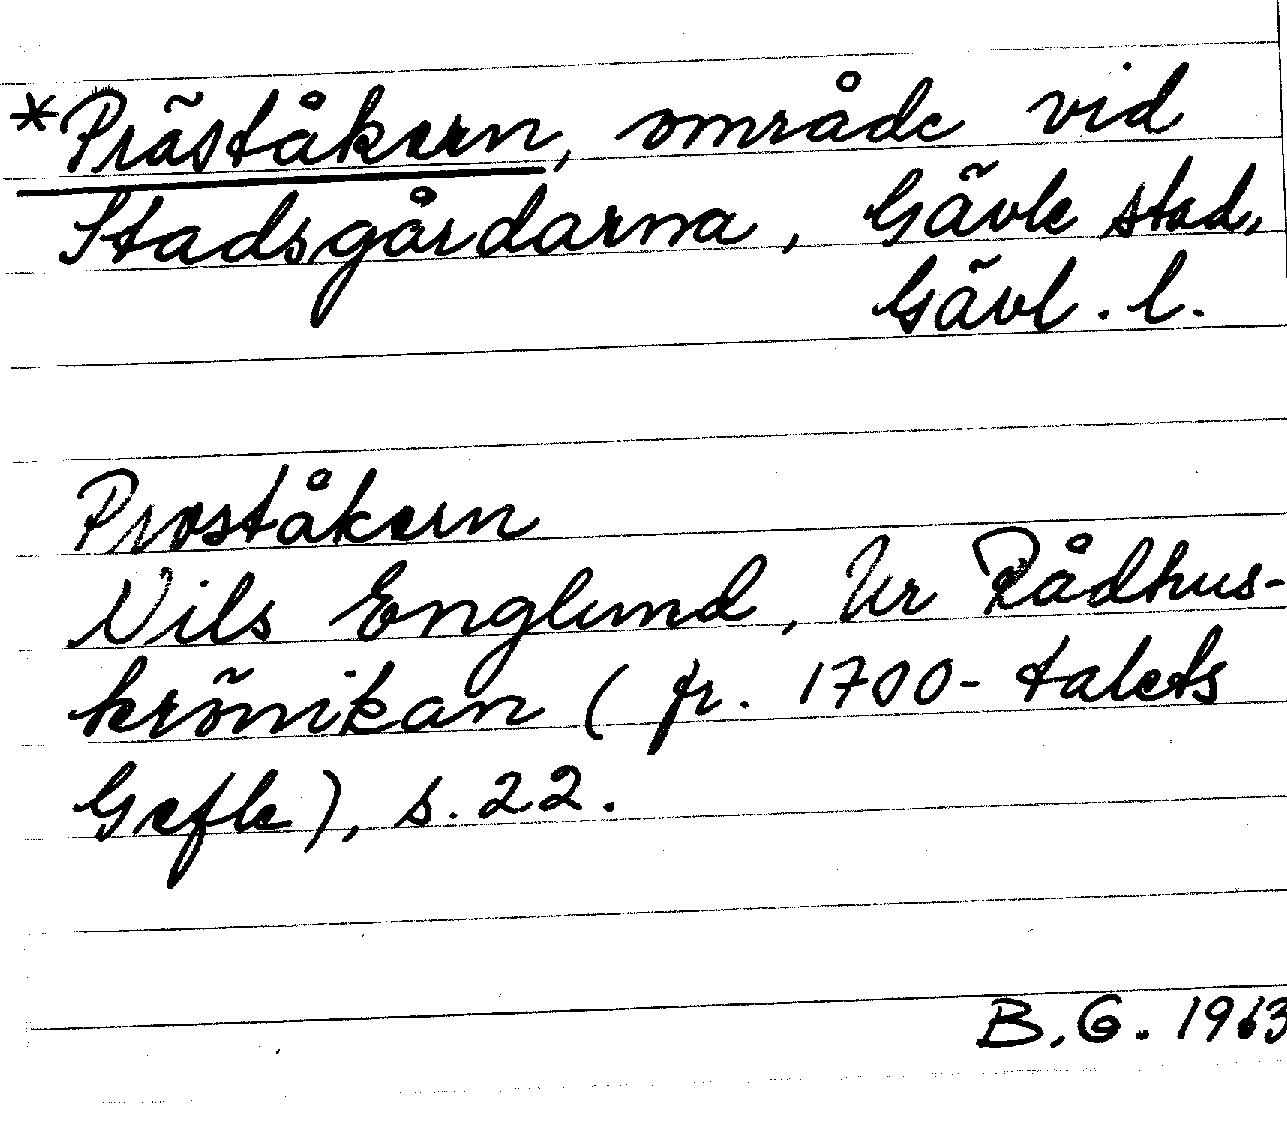 *Präståkern, område vid
Stadsgårdarna, Gävle stad,
Gävl. l.
Proståkern
Nils Englund, Ur Rådhus-
krönikan (fr. 1700-talets
Gefle), s. 22.
B. G. 1963